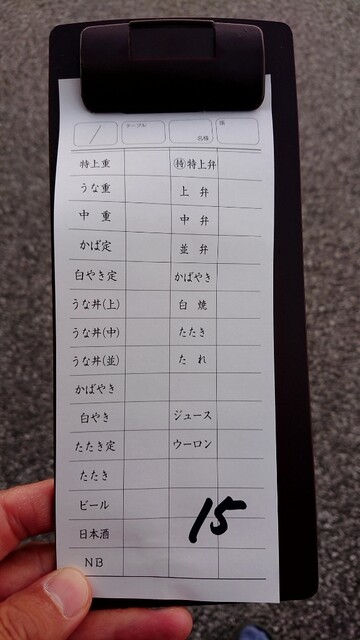 / テーブル 名様 係
特上重 ㊕特上弁
うな重 上 弁
中 重 中 弁
かば定 並 弁
白やき定 かばやき
うな丼(上) 白 焼
うな丼(中) たたき
うな丼(並) た れ
かばやき
白やき ジュース
たたき定 ウーロン
たたき
ビール
15
日本酒
NB